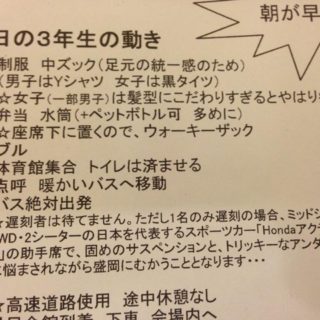 朝が早
日の３年生の動き
制服　中ズック（足元の統一感のため）
（男子はYシャツ　女子は黒タイツ）
☆女子（一部男子）は髪型にこだわりすぎるとやはり
弁当　水筒（＋ペットボトル可　多めに）
☆座席下に置くので、ウォーキーザック
ブル
体育館集合　トイレは済ませる
点呼　暖かいバスへ移動
バス絶対出発
★遅刻者は待てません。ただし1名のみ遅刻の場合、ミッドシ
WD・2シーターの日本を代表するスポーツカー「Hondaアク
」の助手席で、固めのサスペンションと、トリッキーなアンダ
に悩まされながら盛岡にむかうこととなります・・・
★高速道路使用　途中休憩なし
下車　会場内へ